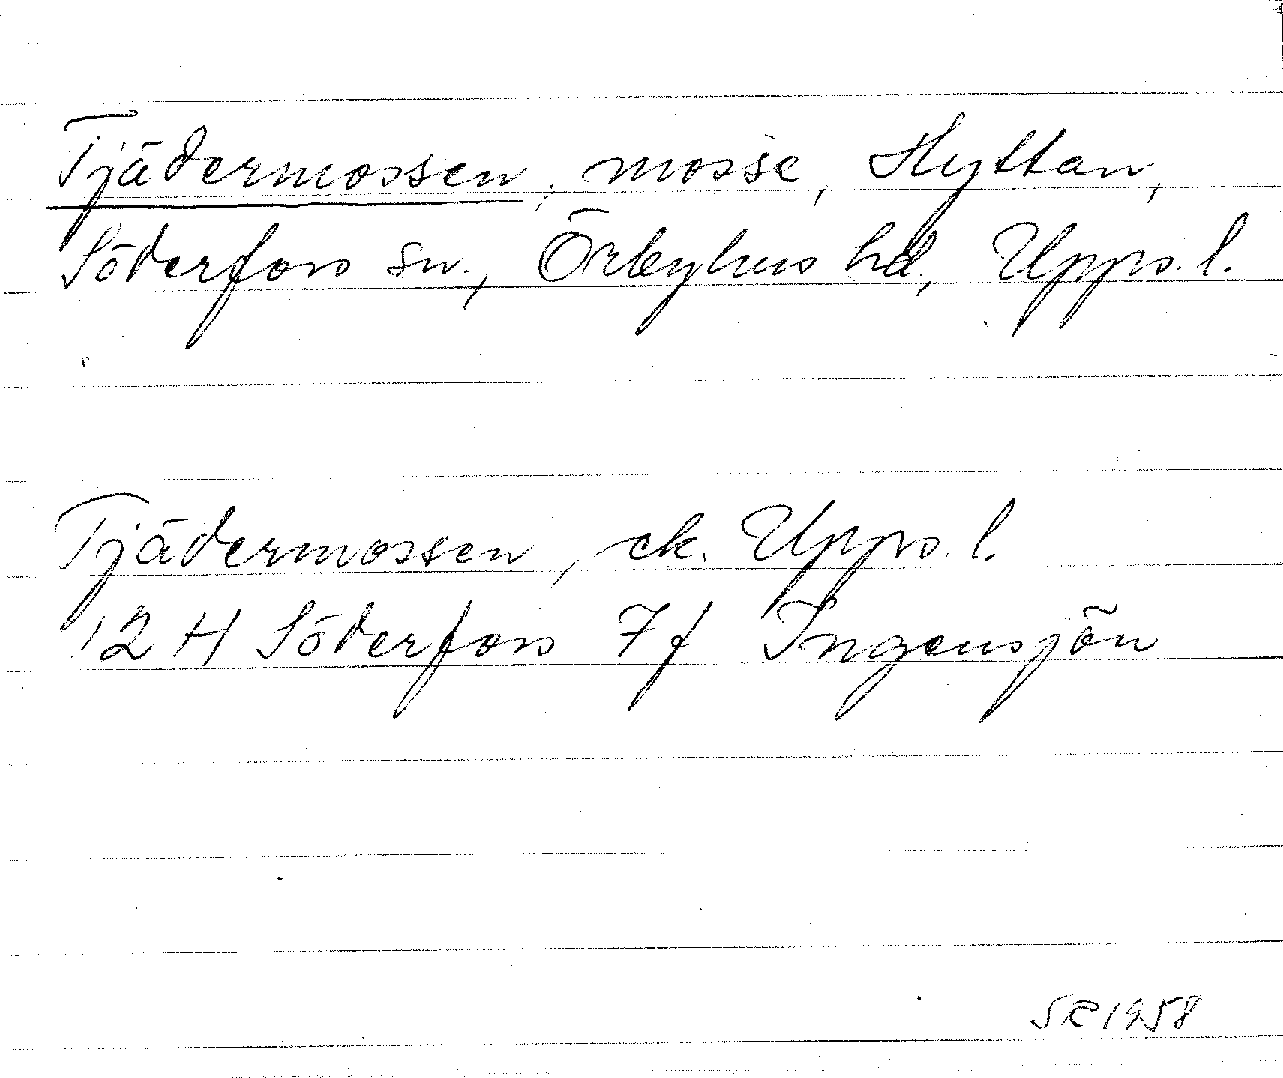 Tjädermossen, mosse, Hyttan,
Söderfors sn., Örbyhus hd, Upps. l.
Tjädermossen, ek. Upps. l.
12 H Söderfors 7f Ingensjön
SR 1958